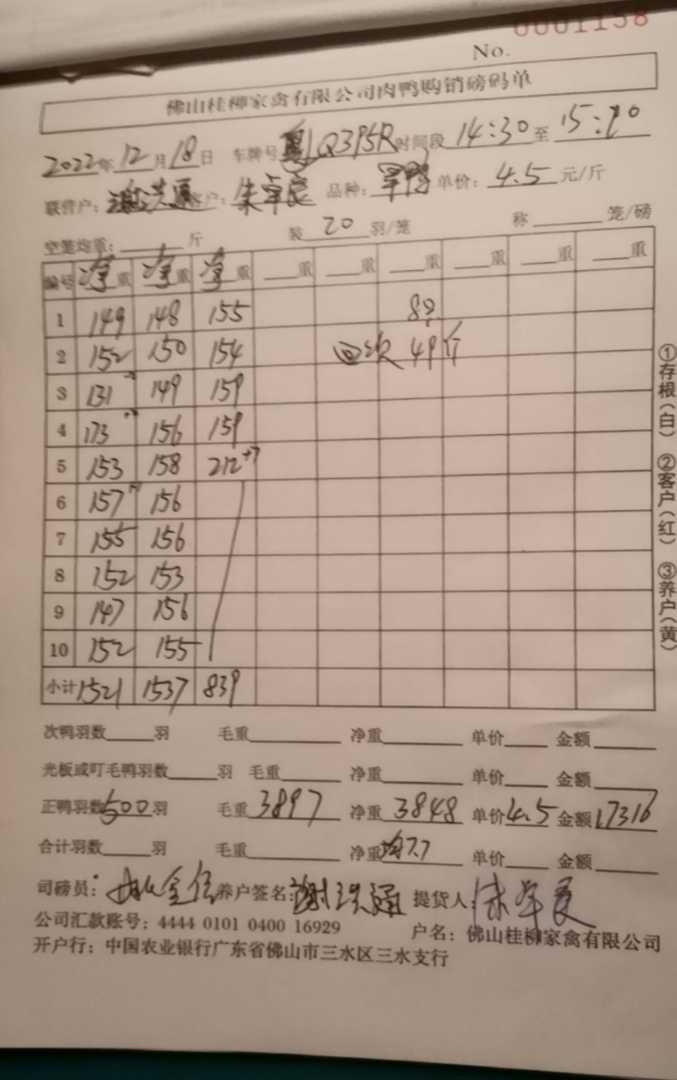 0001158
No.
佛山桂柳家禽有限公司肉鸭购销磅码单
2022年12月18日 车牌号 粤LQ395R 时间段 14:30 至 15:20
联营户: 谢洪通 客户: 朱卓良 品种: 单价: 4.5 元/斤
空笼均重: 斤 装 20 羽/笼 称 笼/磅
编号 净重 净重 净重 重 重 重 重 重 重
1 149 148 155 8只
2 152 150 154 回次 49斤
3 131 149 159
4 173 156 159
5 153 158 212+7
6 157 156
7 155 156
8 152 153
9 147 156
10 152 155
小计 1521 1537 839
次鸭羽数 羽 毛重 净重 单价 金额
光板或叮毛鸭羽数 羽 毛重 净重 单价 金额
正鸭羽数 500 羽 毛重 3897 净重 3848 单价 4.5 金额 17316
合计羽数 羽 毛重 净重 均7.7 单价 金额
司磅员: 养户签名: 谢洪通 提货人: 朱卓良
公司汇款账号: 4444 0101 0400 16929 户名: 佛山桂柳家禽有限公司
开户行: 中国农业银行广东省佛山市三水区三水支行
①存根(白) ②客户(红) ③养户(黄)